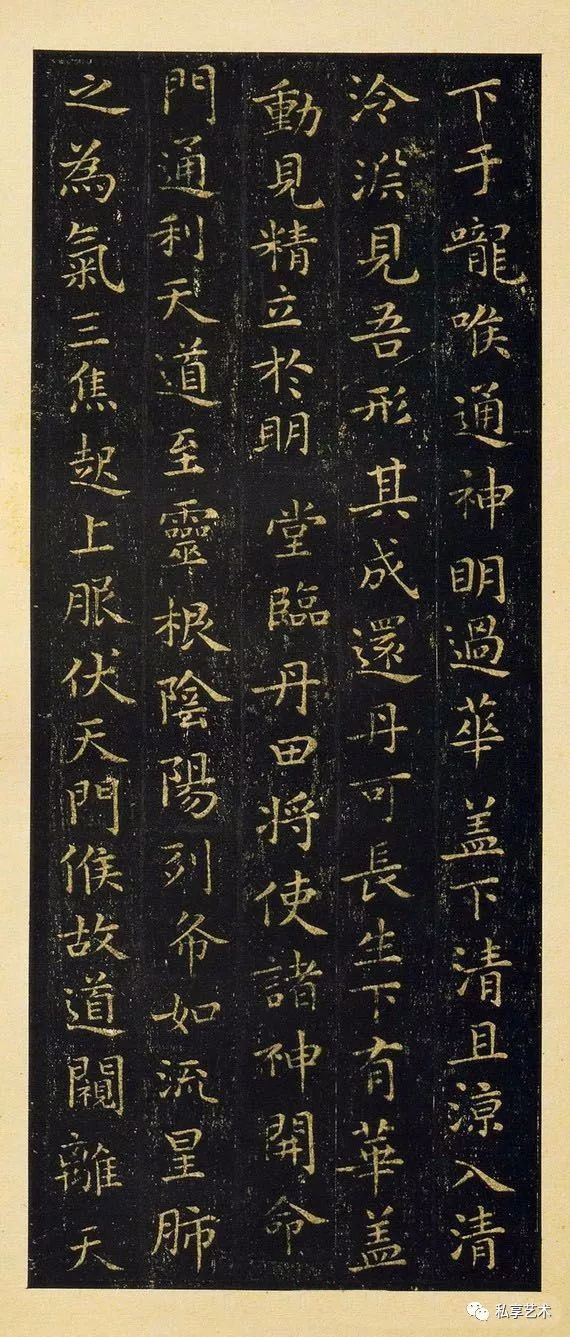 下于嚨喉通神明過華盖下清且涼入清
泠渊見吾形其成還丹可長生下有華盖
動見精立於明堂臨丹田将使諸神開命
門通利天道至靈根陰陽列布如流星肺
之為氣三焦起上服伏天門候故道闚離天
私享艺术